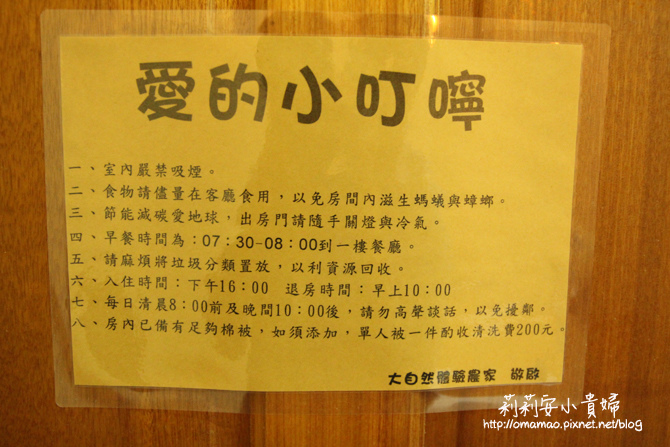 愛的小叮嚀
一、室內嚴禁吸煙。
二、食物請儘量在客廳食用，以免房間內滋生螞蟻與蟑螂。
三、節能減碳愛地球，出房門請隨手關燈與冷氣。
四、早餐時間為：07：30-08：00到一樓餐廳。
五、請麻煩將垃圾分類置放，以利資源回收。
六、入住時間：下午16：00　退房時間：早上10：00
七、每日清晨8：00前及晚間10：00後，請勿高聲談話，以免擾鄰。
八、房內已備有足夠棉被，如須添加，單人被一件酌收清洗費200元。
大自然體驗農家　敬啟
莉莉安小貴婦
http://omamao.pixnet.net/blog